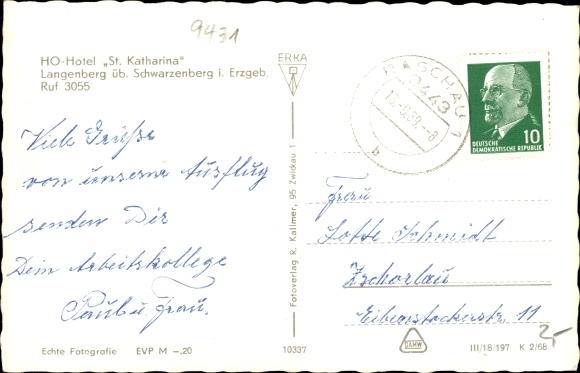 9431
HO-Hotel „St. Katharina"
Langenberg üb. Schwarzenberg i. Erzgeb.
Ruf 3055
Viele Grüße
von unserem Ausflug
senden Dir
Dein Arbeitskollege
Paul u. Frau.
Echte Fotografie EVP M –.20
ERKA
Fotoverlag R. Kallmer, 95 Zwickau 1
10337
RASCHAU 1
9443
b
DEUTSCHE
DEMOKRATISCHE REPUBLIK
10
Frau
Lotte Schmidt
Zschorlau
Eibenstockerstr. 11
2,-
DAMW
III/18/197 K 2/68